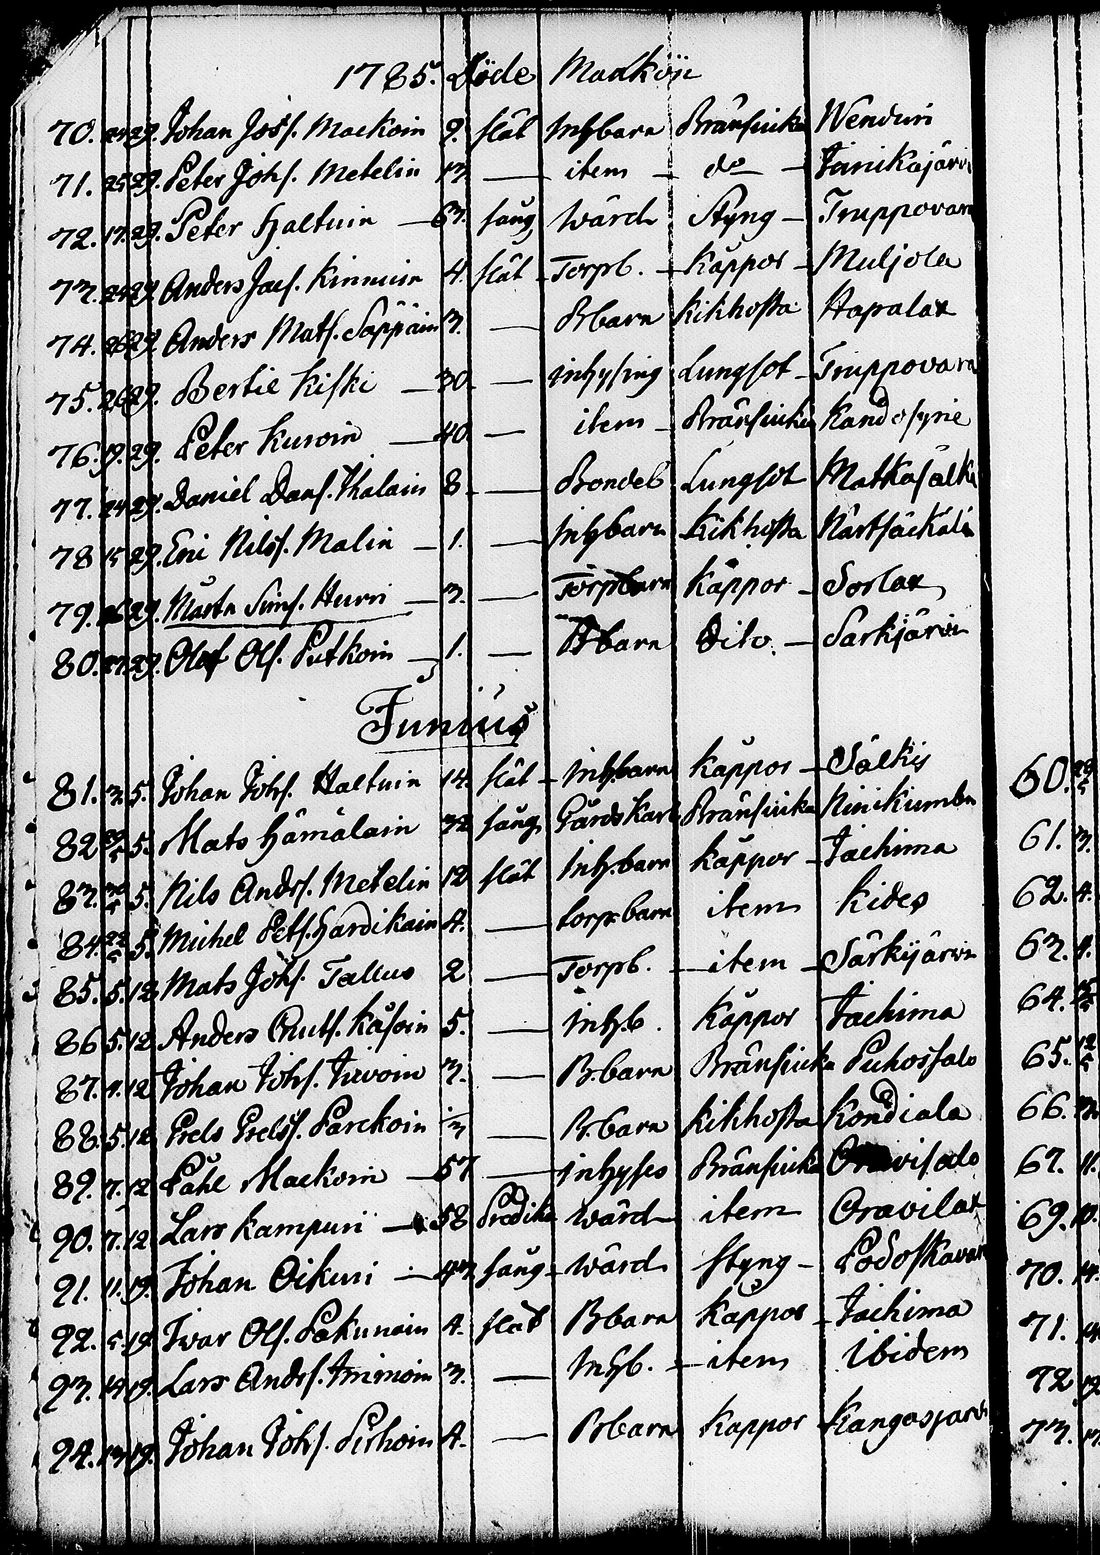 1785. Döde Mankön
70. 24 29. Johan Joss. Mackoin 9. slät Inhbarn Brånsiuka Wenduri
71. 25 29. Peter Johs. Metelin 13. — item — do — Jänikäjärvi
72. 17. 29. Peter Haltuin — 63. sång Wärd Styng — Truppovara
73. 24 29. Anders Jacs. Kinnuin 4. slät Torpb. — Kåppor — Muljola
74. 26 29. Anders Mats. Såppäin 3. — Bbarn Kikhosta Hapalax
75. 26 29. Bertil Kiski — 30. — inhysing Lungsot — Truppovara
76. 19. 29. Peter Kuroin — 40. — item — Brånsiuka
77. 24 29. Daniel Dans. Ikalain 8. — Bondeb Lungsot Matkasälkä
78 15 29. Eric Nilss. Malin — 1. — Inhbarn Kikhosta
79. 26 29. Märta Sims. Hurri — 3. — Torpbarn Kåppor — Sorlax
80. 27. 29. Olof Ols. Putkoin — 1. — Bbarn Dito. — Särkjärvi
Junius
81. 3. 5. Johan Johs. Haltuin 14. slät — Inhbarn Kåppor — Sälkis
82 5. Mats Hämäläin 32 sång Gårdskarl Brånsiuka Ninikumbu
83. 5. Nils Andrs. Metelin 12 slät Inh.barn Kåppor — Jachima
84. 5. Michel Pets. Hardikain 4. — torpbarn item Kides
85. 5. 12 Mats Johs. Tallus 2 — Torpb. — item — Särkijärvi
86 5. 12 Anders Knuts. Kåsoin 5. — Inh.b. Kåppor Jachima
87. 4. 12 Johan Johs. Turvoin 3. — B.barn Brånsiuka Puhossalo
88. 5. 12 Grels Grelss. Parckoin — B.barn Kikhosta Kondiala
89. 7. 12 Påhl Mackoin — 57 — inhyses Brånsiuka Oravisalo
90. 7. 12 Lars Kampuri — 58 Predik. Wärd — item Oravilax
91. 11. 19. Johan Oikuri — 43 sång — Wärd Styng — Podoskavara
92. 5. 19. Ivar Ols. Pakunain 4. slät Bbarn Kåppor — Jachima
93. 14 19. Lars Andrs. Immoin 3. — Inhb. — item Ibidem
94. 13 19. Johan Johs. Pirhoin 4. — Bbarn Kåppor — Kangasjärvi
60.
61. 3.
62. 4.
63. 4.
64.
65. 12
66.
67. 11.
69. 10.
70. 14.
71.
72
73.